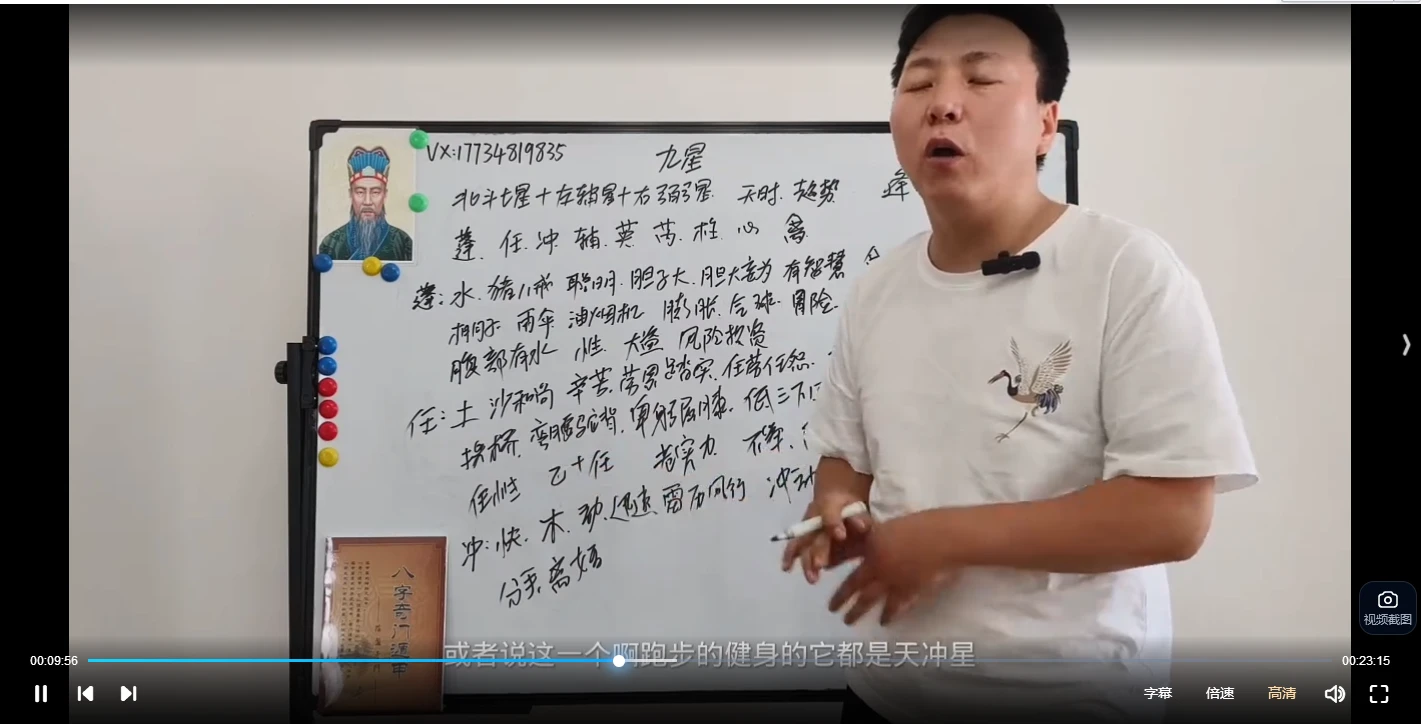 VX:17734819835
九星
北斗七星+左辅星+右弼星 天时.趋势 蓬
蓬.任.冲 辅.英 芮.柱.心 禽
蓬:水.猪八戒 聪明.胆子大.胆大妄为 有智慧
雨伞 油烟机 膨胀.气球.冒险.
腹部有水 性. 大盗 风险投资
任:土 沙和尚 辛苦.劳累踏实.任劳任怨.
拱桥.弯腰驼背.卑躬屈膝.低三下
任性 乙+任 老实力
冲:快.木.动.迅速.雷厉风行 冲动
分手.离婚
八字奇门遁甲
或者说这一个啊跑步的健身的它都是天冲星
00:09:56
00:23:15
视频截图
字幕 倍速 高清